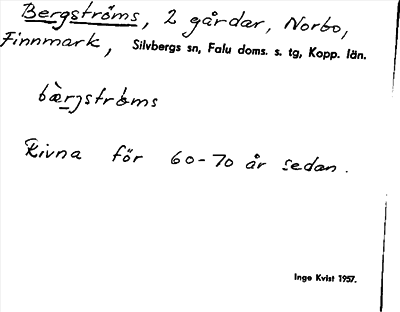 Bergströms, 2 gårdar, Norbo,
Finnmark, Silvbergs sn, Falu doms. s. tg, Kopp. län.
bæ̀rjströms
Rivna för 60-70 år sedan.
Inge Kvist 1957.